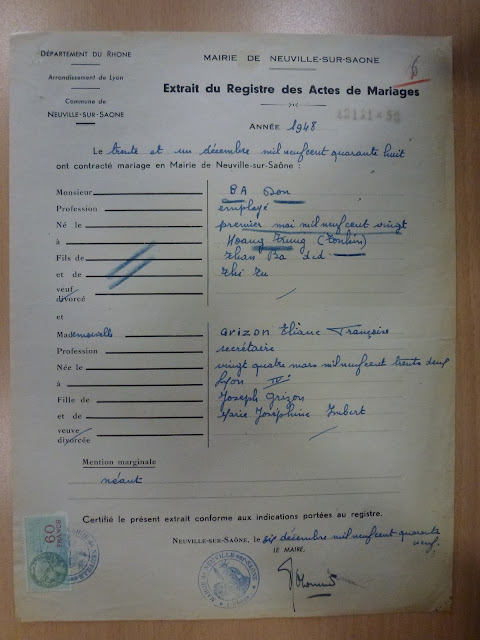 DÉPARTEMENT DU RHONE
Arrondissement de Lyon
Commune de
NEUVILLE-SUR-SAONE
MAIRIE DE NEUVILLE-SUR-SAONE
6
Extrait du Registre des Actes de Mariages
ANNÉE 1948
Le trente et un décembre mil neuf cent quarante huit
ont contracté mariage en Mairie de Neuville-sur-Saône :
Monsieur BA Son
Profession employé
Né le premier mai mil neuf cent vingt
à Hoang Trung (Tonkin)
Fils de Khan Ba dcd
et de Thi Tu
veuf
divorcé
et
Mademoiselle Grizon Eliane Françoise
Profession secrétaire
Née le vingt quatre mars mil neuf cent trente deux
à Lyon IV
Fille de Joseph Grizon
et de Marie Joséphine Imbert
veuve
divorcée
Mention marginale
néant
Certifié le présent extrait conforme aux indications portées au registre.
NEUVILLE-SUR-SAÔNE, le dix décembre mil neuf cent quarante
neuf.
LE MAIRE,
60